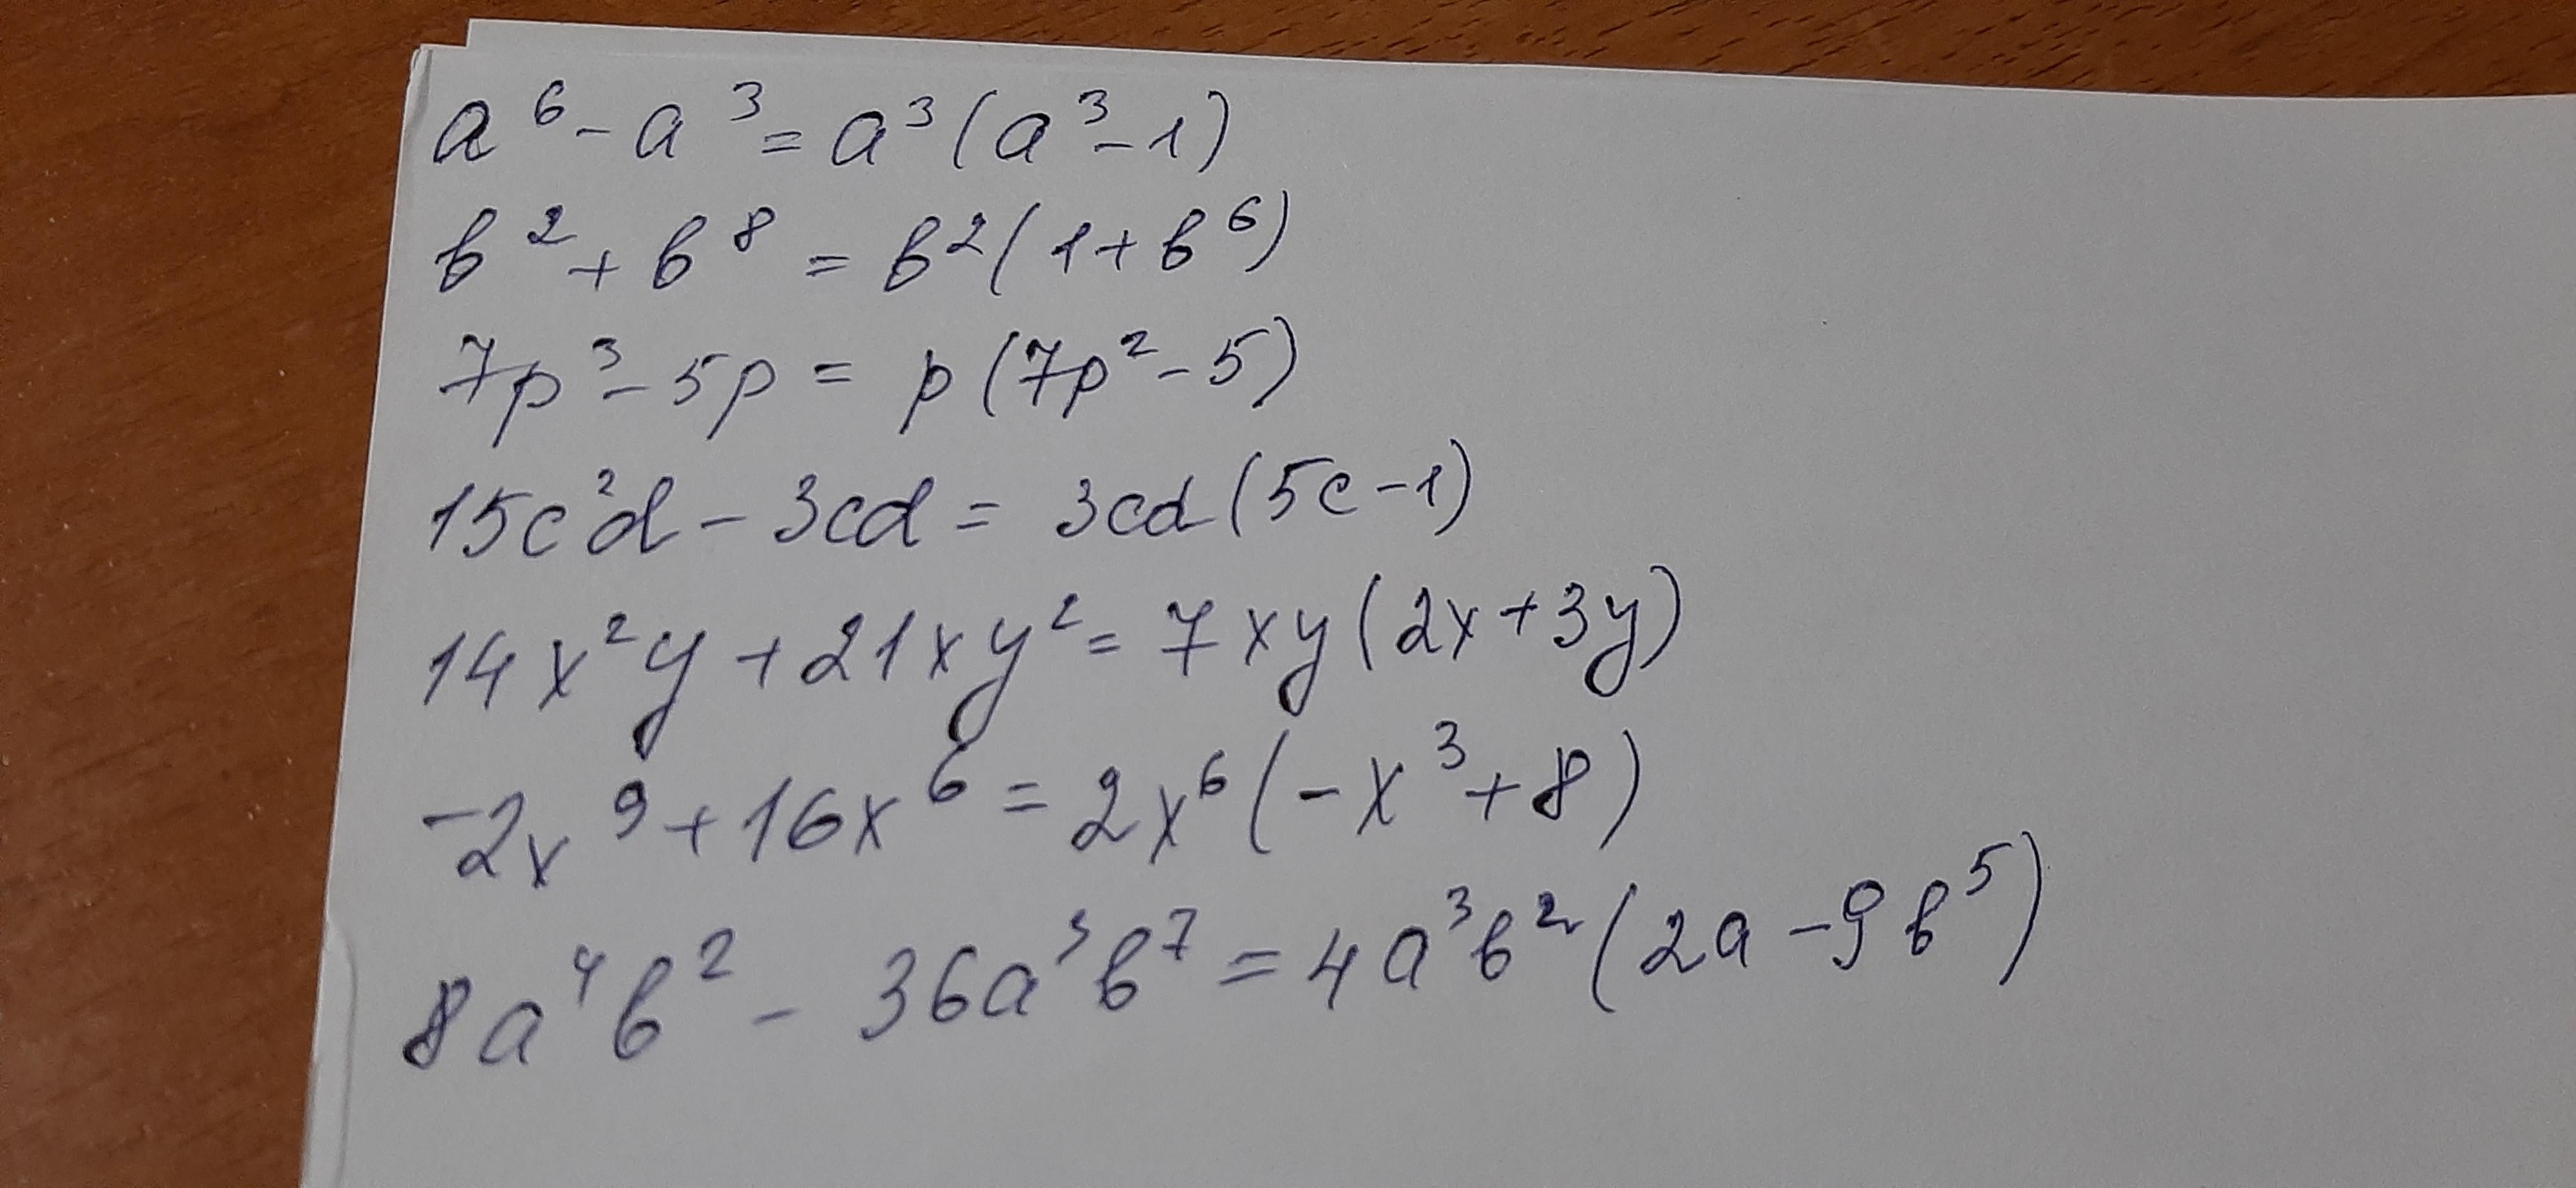 a⁶ - a³ = a³(a³ - 1)
b² + b⁸ = b²(1 + b⁶)
7p³ - 5p = p(7p² - 5)
15c²d - 3cd = 3cd(5c - 1)
14x²y + 21xy² = 7xy(2x + 3y)
-2x⁹ + 16x⁶ = 2x⁶(-x³ + 8)
8a⁴b² - 36a³b⁷ = 4a³b²(2a - 9b⁵)